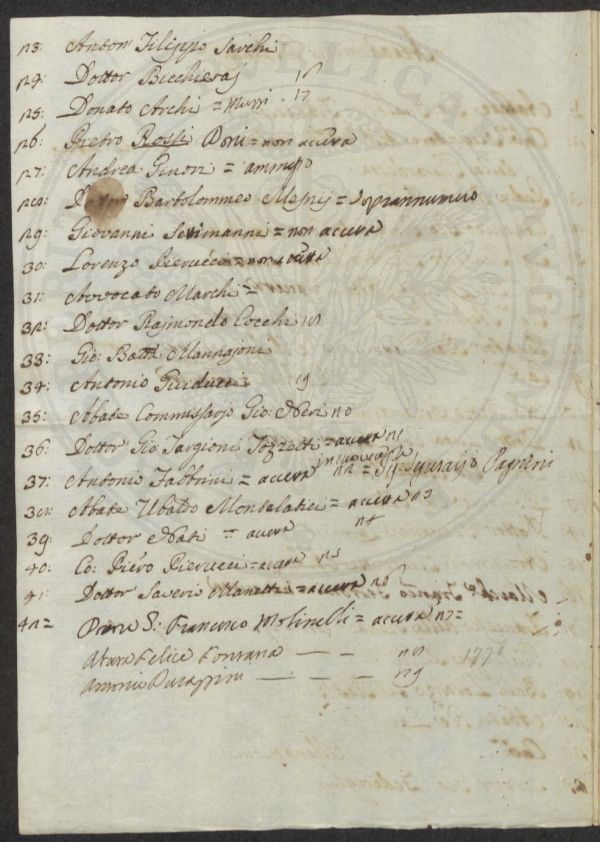 23: Anton Filippo Sarchi
24: Dottor Bicchieraj 16
25: Donato Archi = Murri 17
26: Pietro Rossi Doni = non accusa
27: Andrea Ginori = ammesso
28: Dottor Bartolommeo Mesnij = Soprannumero
29: Giovanni Setimanni = non accusa
30: Lorenzo Pierucci = non
31: Avvocato Marchi =
32: Dottor Raimondo Cocchi 18
33: Gio: Batta Mannajoni
34: Antonio Guiducci 19
35: Abate Commissario Gio: Neri 20
36: Dottor Gio Targioni Tozzetti = accusa 21
37: Antonio Fabbrini = accusa 22 = Pagnini
38: Abate Ubaldo Montelatici = accusa 23
39: Dottor Nati = accusa 24
40: Co: Piero Pierucci = accusa 25
41: Dottor Saverio Manetti = accusa 26
42 = Francesco Molinelli = accusa 27 =
Abate Felice Fontana — — 28 177
Antonio Durazzini — — — 29